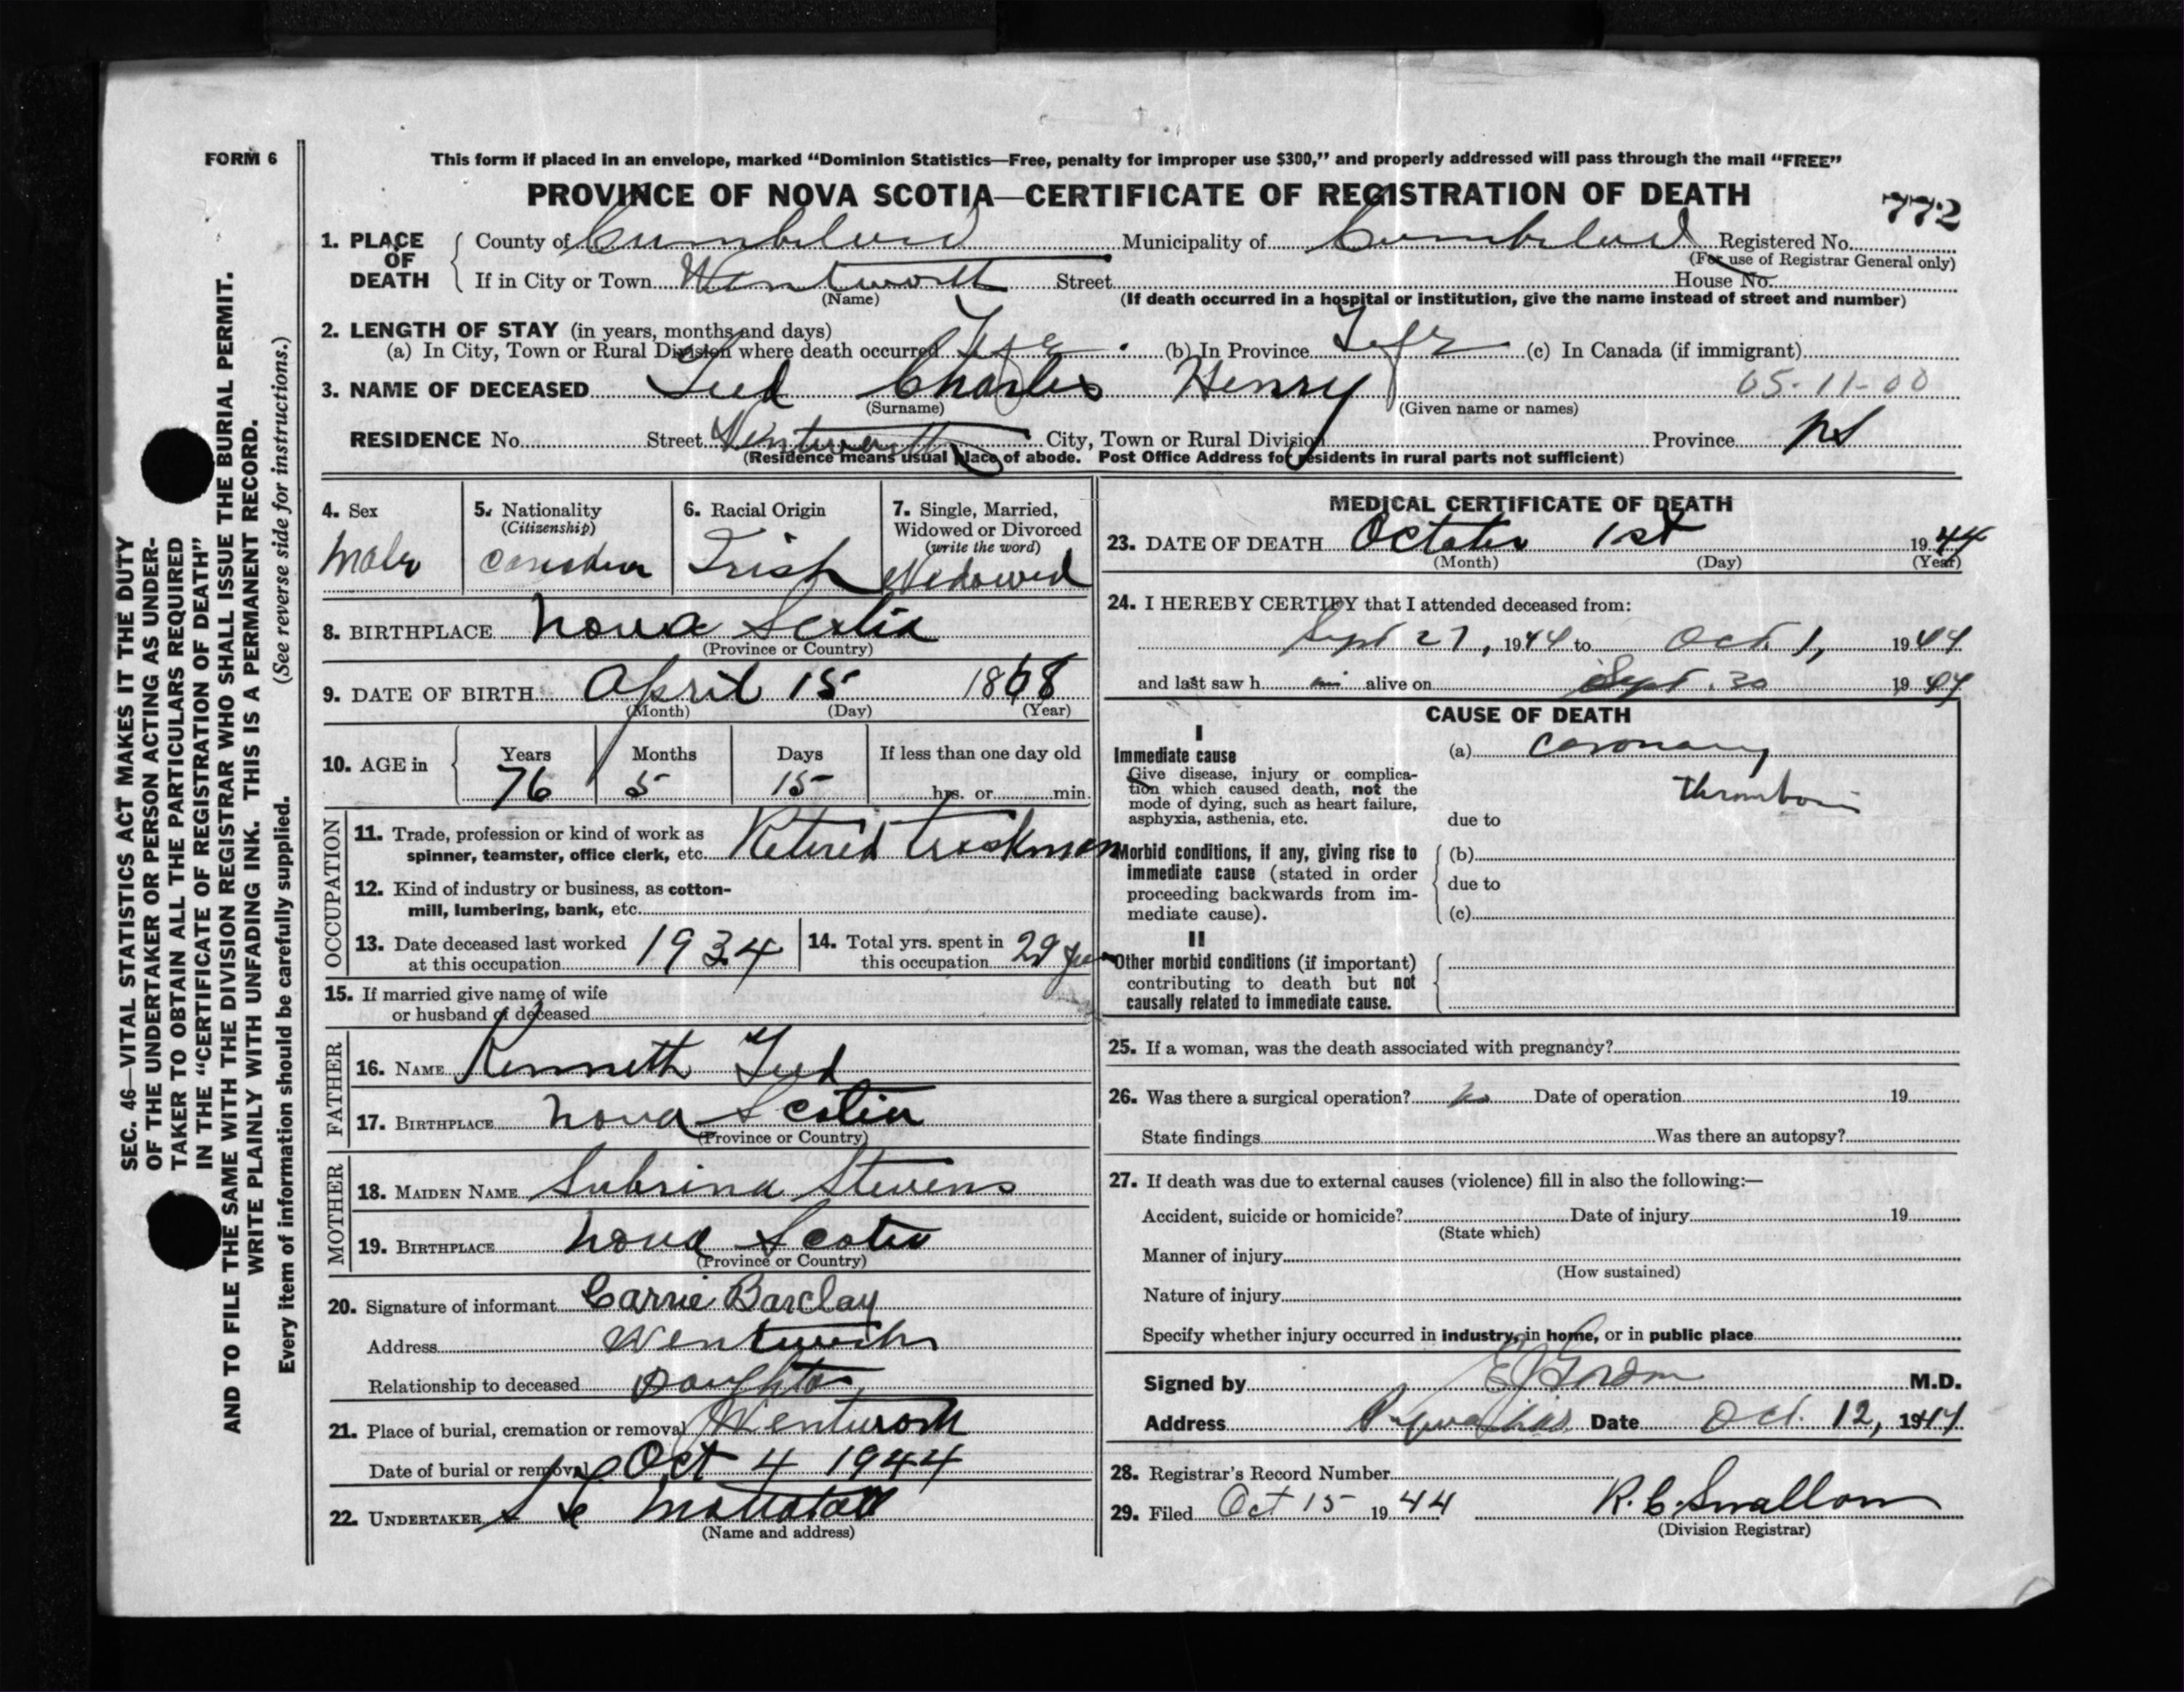 FORM 6
This form if placed in an envelope, marked "Dominion Statistics—Free, penalty for improper use $300," and properly addressed will pass through the mail "FREE"
PROVINCE OF NOVA SCOTIA—CERTIFICATE OF REGISTRATION OF DEATH
772
1. PLACE OF DEATH
County of Cumberland Municipality of Cumberland Registered No.
(For use of Registrar General only)
If in City or Town Wentworth Street House No.
(Name) (If death occurred in a hospital or institution, give the name instead of street and number)
2. LENGTH OF STAY (in years, months and days)
(a) In City, Town or Rural Division where death occurred Life (b) In Province Life (c) In Canada (if immigrant)
3. NAME OF DECEASED Teed Charles Henry 05-11-00
(Surname) (Given name or names)
RESIDENCE No. Street Wentworth City, Town or Rural Division Province NS
(Residence means usual place of abode. Post Office Address for residents in rural parts not sufficient)
4. Sex
Male
5. Nationality
(Citizenship)
Canadian
6. Racial Origin
Irish
7. Single, Married,
Widowed or Divorced
(write the word)
Widowed
8. BIRTHPLACE Nova Scotia
(Province or Country)
9. DATE OF BIRTH April 15 1868
(Month) (Day) (Year)
10. AGE in
Years Months Days If less than one day old
76 5 15 hrs. or min.
OCCUPATION
11. Trade, profession or kind of work as
spinner, teamster, office clerk, etc. Retired trackman
12. Kind of industry or business, as cotton-
mill, lumbering, bank, etc.
13. Date deceased last worked
at this occupation 1934
14. Total yrs. spent in
this occupation 29
15. If married give name of wife
or husband of deceased
FATHER
16. NAME Kenneth Teed
17. BIRTHPLACE Nova Scotia
(Province or Country)
MOTHER
18. MAIDEN NAME Subrina Stevens
19. BIRTHPLACE Nova Scotia
(Province or Country)
20. Signature of informant Carrie Barclay
Address Wentworth
Relationship to deceased Daughter
21. Place of burial, cremation or removal Wentworth
Date of burial or removal Oct 4 1944
22. UNDERTAKER Mattatall
(Name and address)
MEDICAL CERTIFICATE OF DEATH
23. DATE OF DEATH October 1st 1944
(Month) (Day) (Year)
24. I HEREBY CERTIFY that I attended deceased from:
Sept 27, 1944 to Oct. 1, 1944
and last saw h im alive on Sept. 30 1944
CAUSE OF DEATH
I
Immediate cause
Give disease, injury or complica-
tion which caused death, not the
mode of dying, such as heart failure,
asphyxia, asthenia, etc.
(a) Coronary
Thrombosis
due to
Morbid conditions, if any, giving rise to
immediate cause (stated in order
proceeding backwards from im-
mediate cause).
(b)
due to
(c)
II
Other morbid conditions (if important)
contributing to death but not
causally related to immediate cause.
25. If a woman, was the death associated with pregnancy?
26. Was there a surgical operation? no Date of operation 19
State findings Was there an autopsy?
27. If death was due to external causes (violence) fill in also the following:—
Accident, suicide or homicide? Date of injury 19
(State which)
Manner of injury
(How sustained)
Nature of injury
Specify whether injury occurred in industry, in home, or in public place
Signed by M.D.
Address Date Oct. 12, 1944
28. Registrar's Record Number
29. Filed Oct 15 1944 R. C. Smallom
(Division Registrar)
SEC. 46—VITAL STATISTICS ACT MAKES IT THE DUTY
OF THE UNDERTAKER OR PERSON ACTING AS UNDER-
TAKER TO OBTAIN ALL THE PARTICULARS REQUIRED
IN THE "CERTIFICATE OF REGISTRATION OF DEATH"
AND TO FILE THE SAME WITH THE DIVISION REGISTRAR WHO SHALL ISSUE THE BURIAL PERMIT.
WRITE PLAINLY WITH UNFADING INK. THIS IS A PERMANENT RECORD.
Every item of information should be carefully supplied. (See reverse side for instructions.)